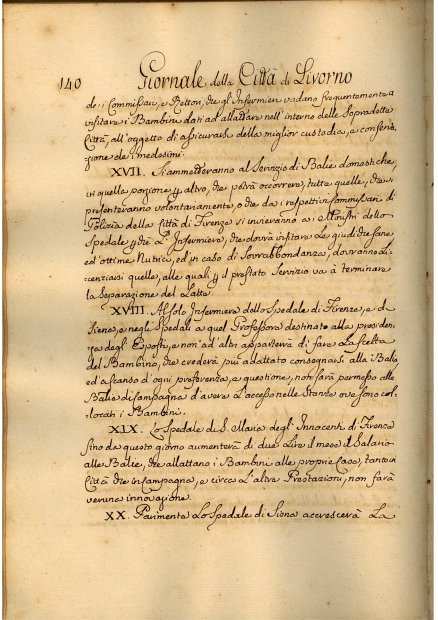 140 Giornale della Città di Livorno
de i Commissari, e Rettori, che gl' Infermieri vadano frequentemente a
visitare i Bambini dati ad allattare nell' interno delle Sopradette
Città, all' oggetto di assicurarsi della miglior custodia, e conserva-
zione de i medesimi.
XVII. Si ammetteranno al Servizio di Balie domestiche,
in quella porzione p altro, che potrà occorrere, tutte quelle, che si
presenteranno volontariamente, o che da i respettivi Commissari di
Polizia della Città di Firenze si invieranno a i Ministri dello
Spedale p che L' Infermiere, che dovrà visitare Le giudichi sane
ed ottime Nutrici, ed in caso di Sovrabbondanza, dovranno Li-
cenziarsi quelle, alle quali p il prestato Servizio va a terminare
la Separazione del Latte.
XVIII. Al solo Infermiere dello Spedale di Firenze, e di
Siena, e negli Spedali a quel Professore destinato alla presiden-
za degli Esposti, e non ad altri apparterrà di fare La scelta
del Bambino, che crederà più adattato consegnarsi alla Balia
ed a scanso d' ogni preferenza, e questione, non sarà permesso alle
Balie di Campagna d' avere L' accesso nelle Stanze ove sono col-
locati i Bambini.
XIX. Lo Spedale di S. Maria degl' Innocenti di Firenze
fino da questo giorno aumenterà di due Lire il mese il Salario
alle Balie, che allattano i Bambini alle proprie Case, tanto in
Città che in Campagna, e circa L' altre Prestazioni, non farà
veruna innovazione.
XX. Parimente Lo Spedale di Siena accrescerà La